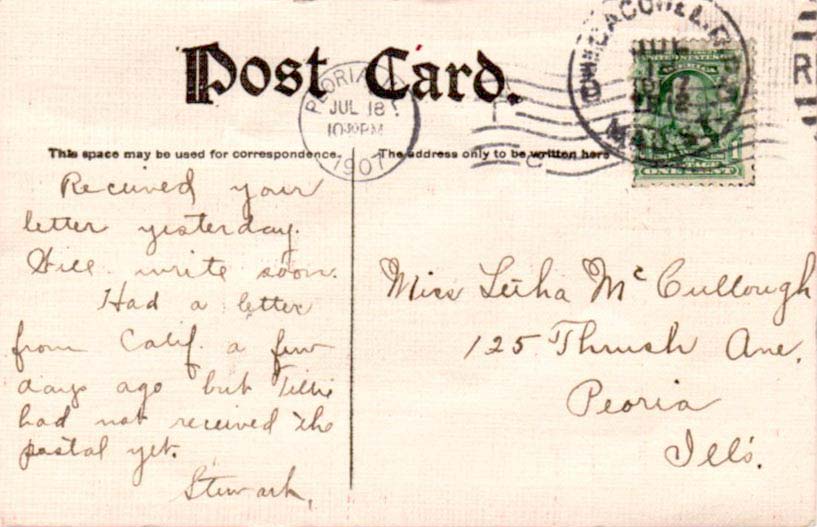 Post Card.
PEORIA, ILL.
JUL 18
1907
This space may be used for correspondence.
The address only to be written here
Received your
letter yesterday.
Will write soon.
Had a letter
from Calif. a few
days ago but Tillie
had not received the
postal yet.
Miss Letha McCullough
125 Thrush Ave.
Peoria
Ills.